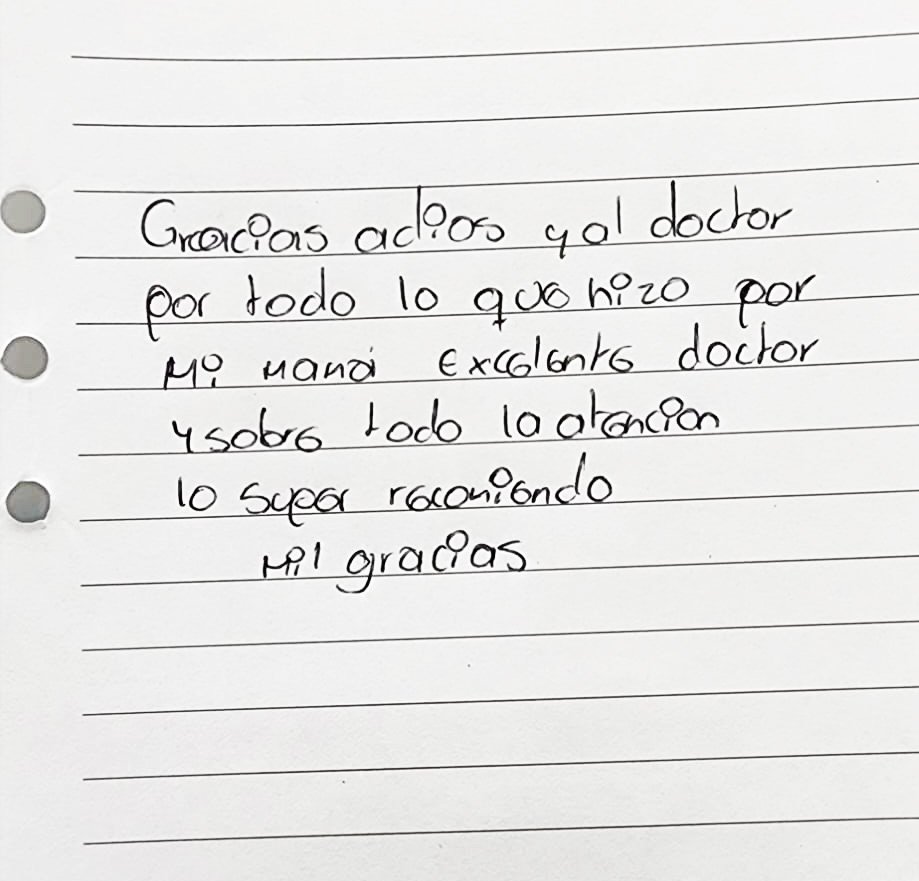 Gracias adios y al doctor
por todo lo que hizo por
mi mamá excelente doctor
y sobre todo la atencion
lo super recomiendo
mil gracias